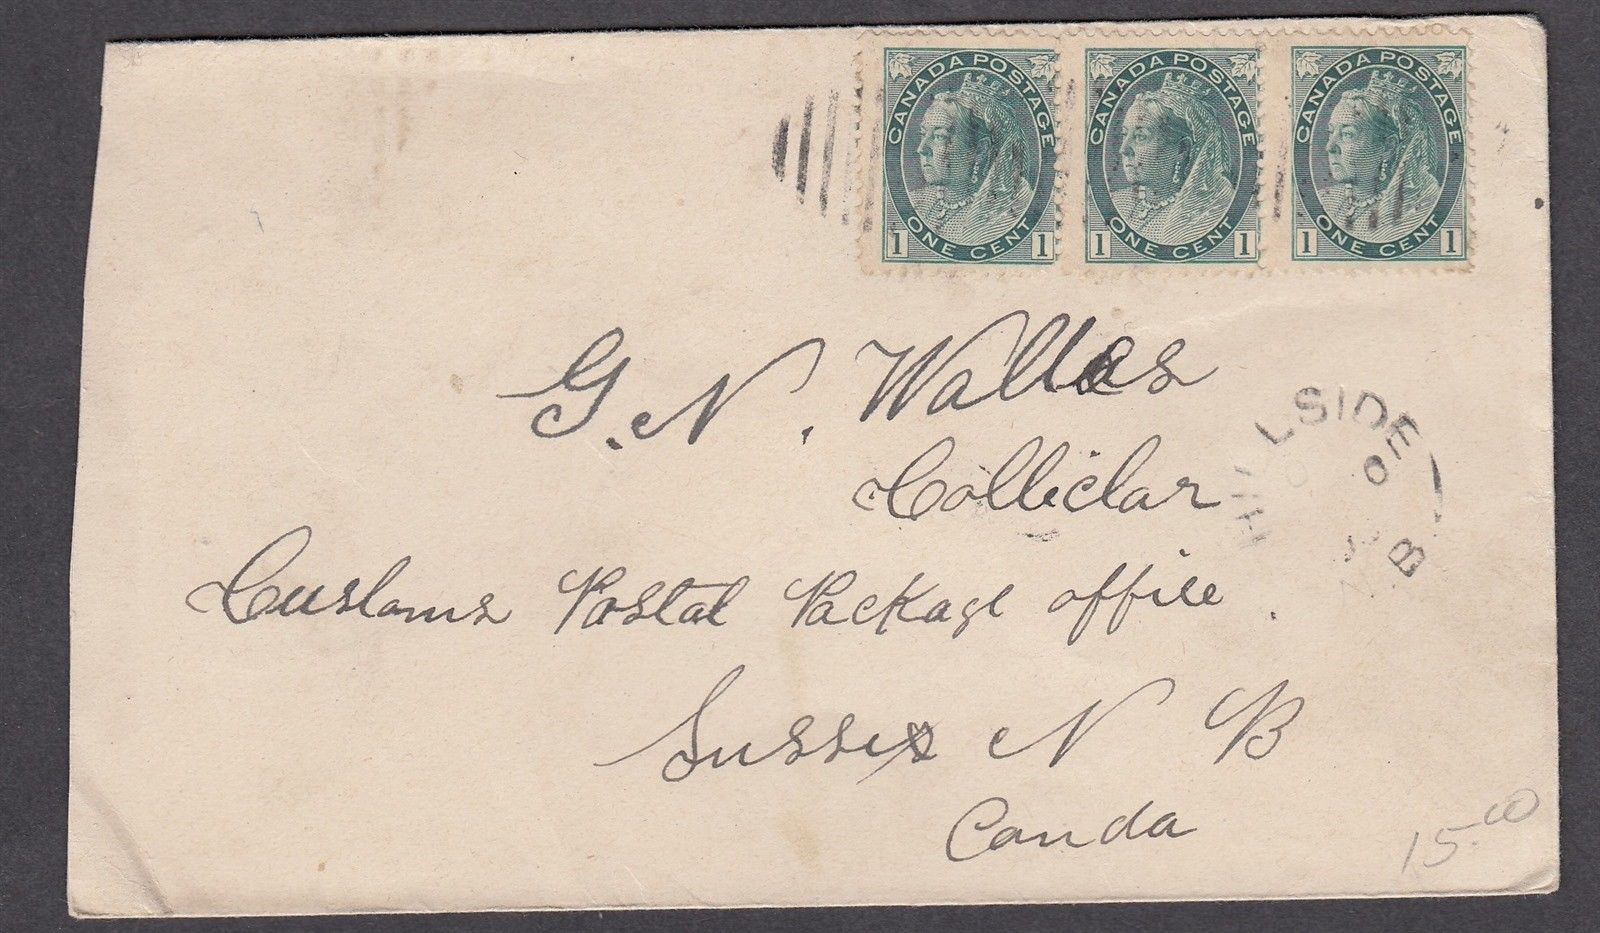 CANADA POSTAGE CANADA POSTAGE CANADA POSTAGE
1 ONE CENT 1 1 ONE CENT 1 1 ONE CENT 1
G. N. Wallas
Colliclar
HILLSIDE
N B
Cuslams Postal Package office.
Sussex N B
Canda
15.00